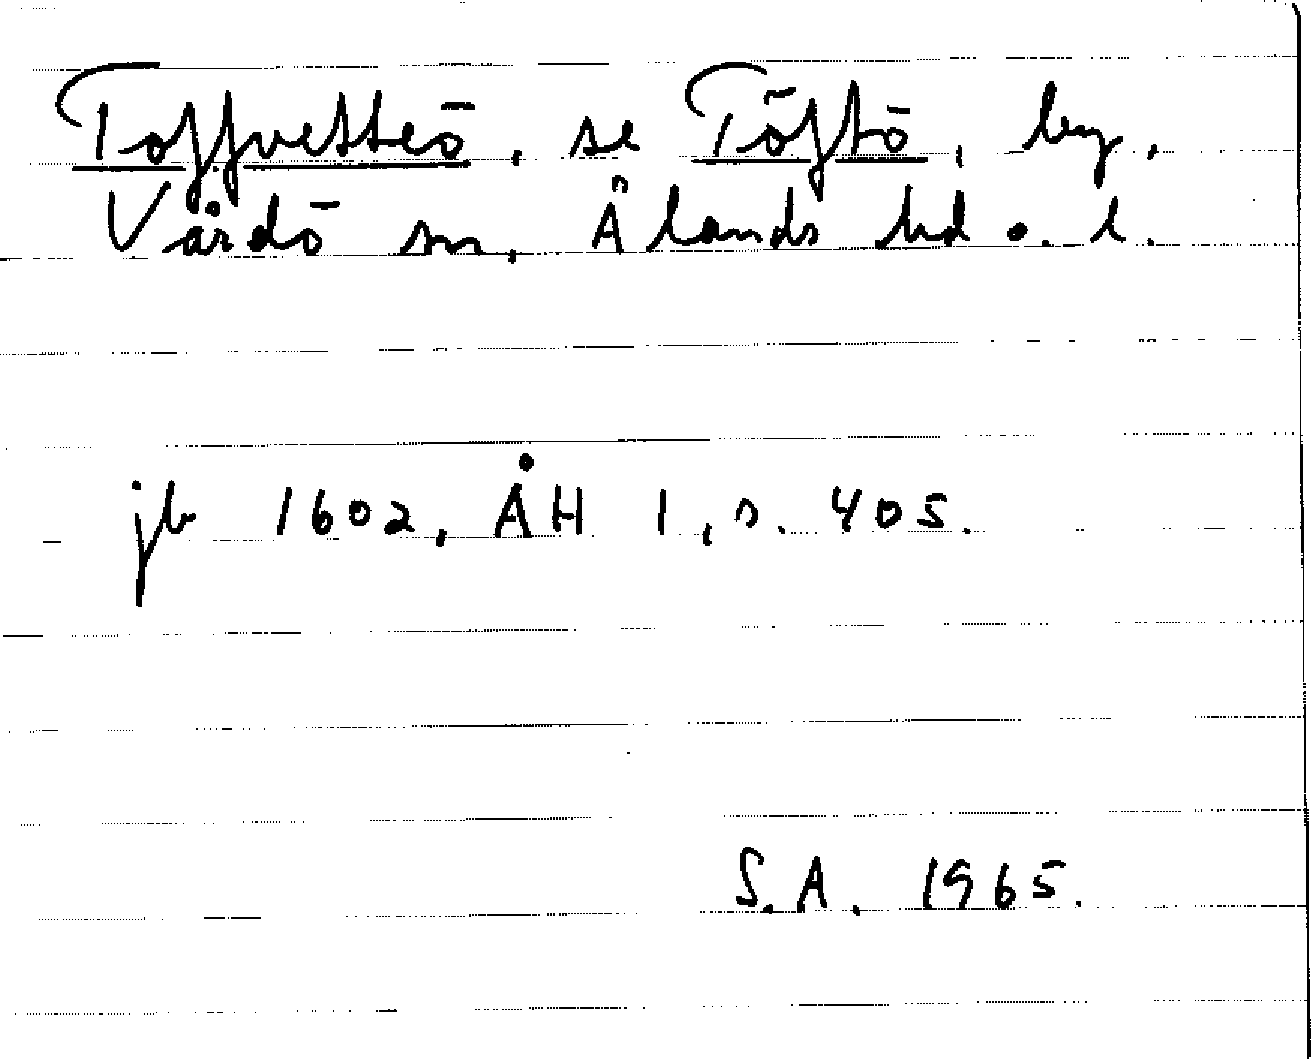 Toffvetteö, se Töftö, by,
Vårdö sn, Ålands hd o. l.
jb 1602, ÅH 1, s. 405.
S.A. 1965.